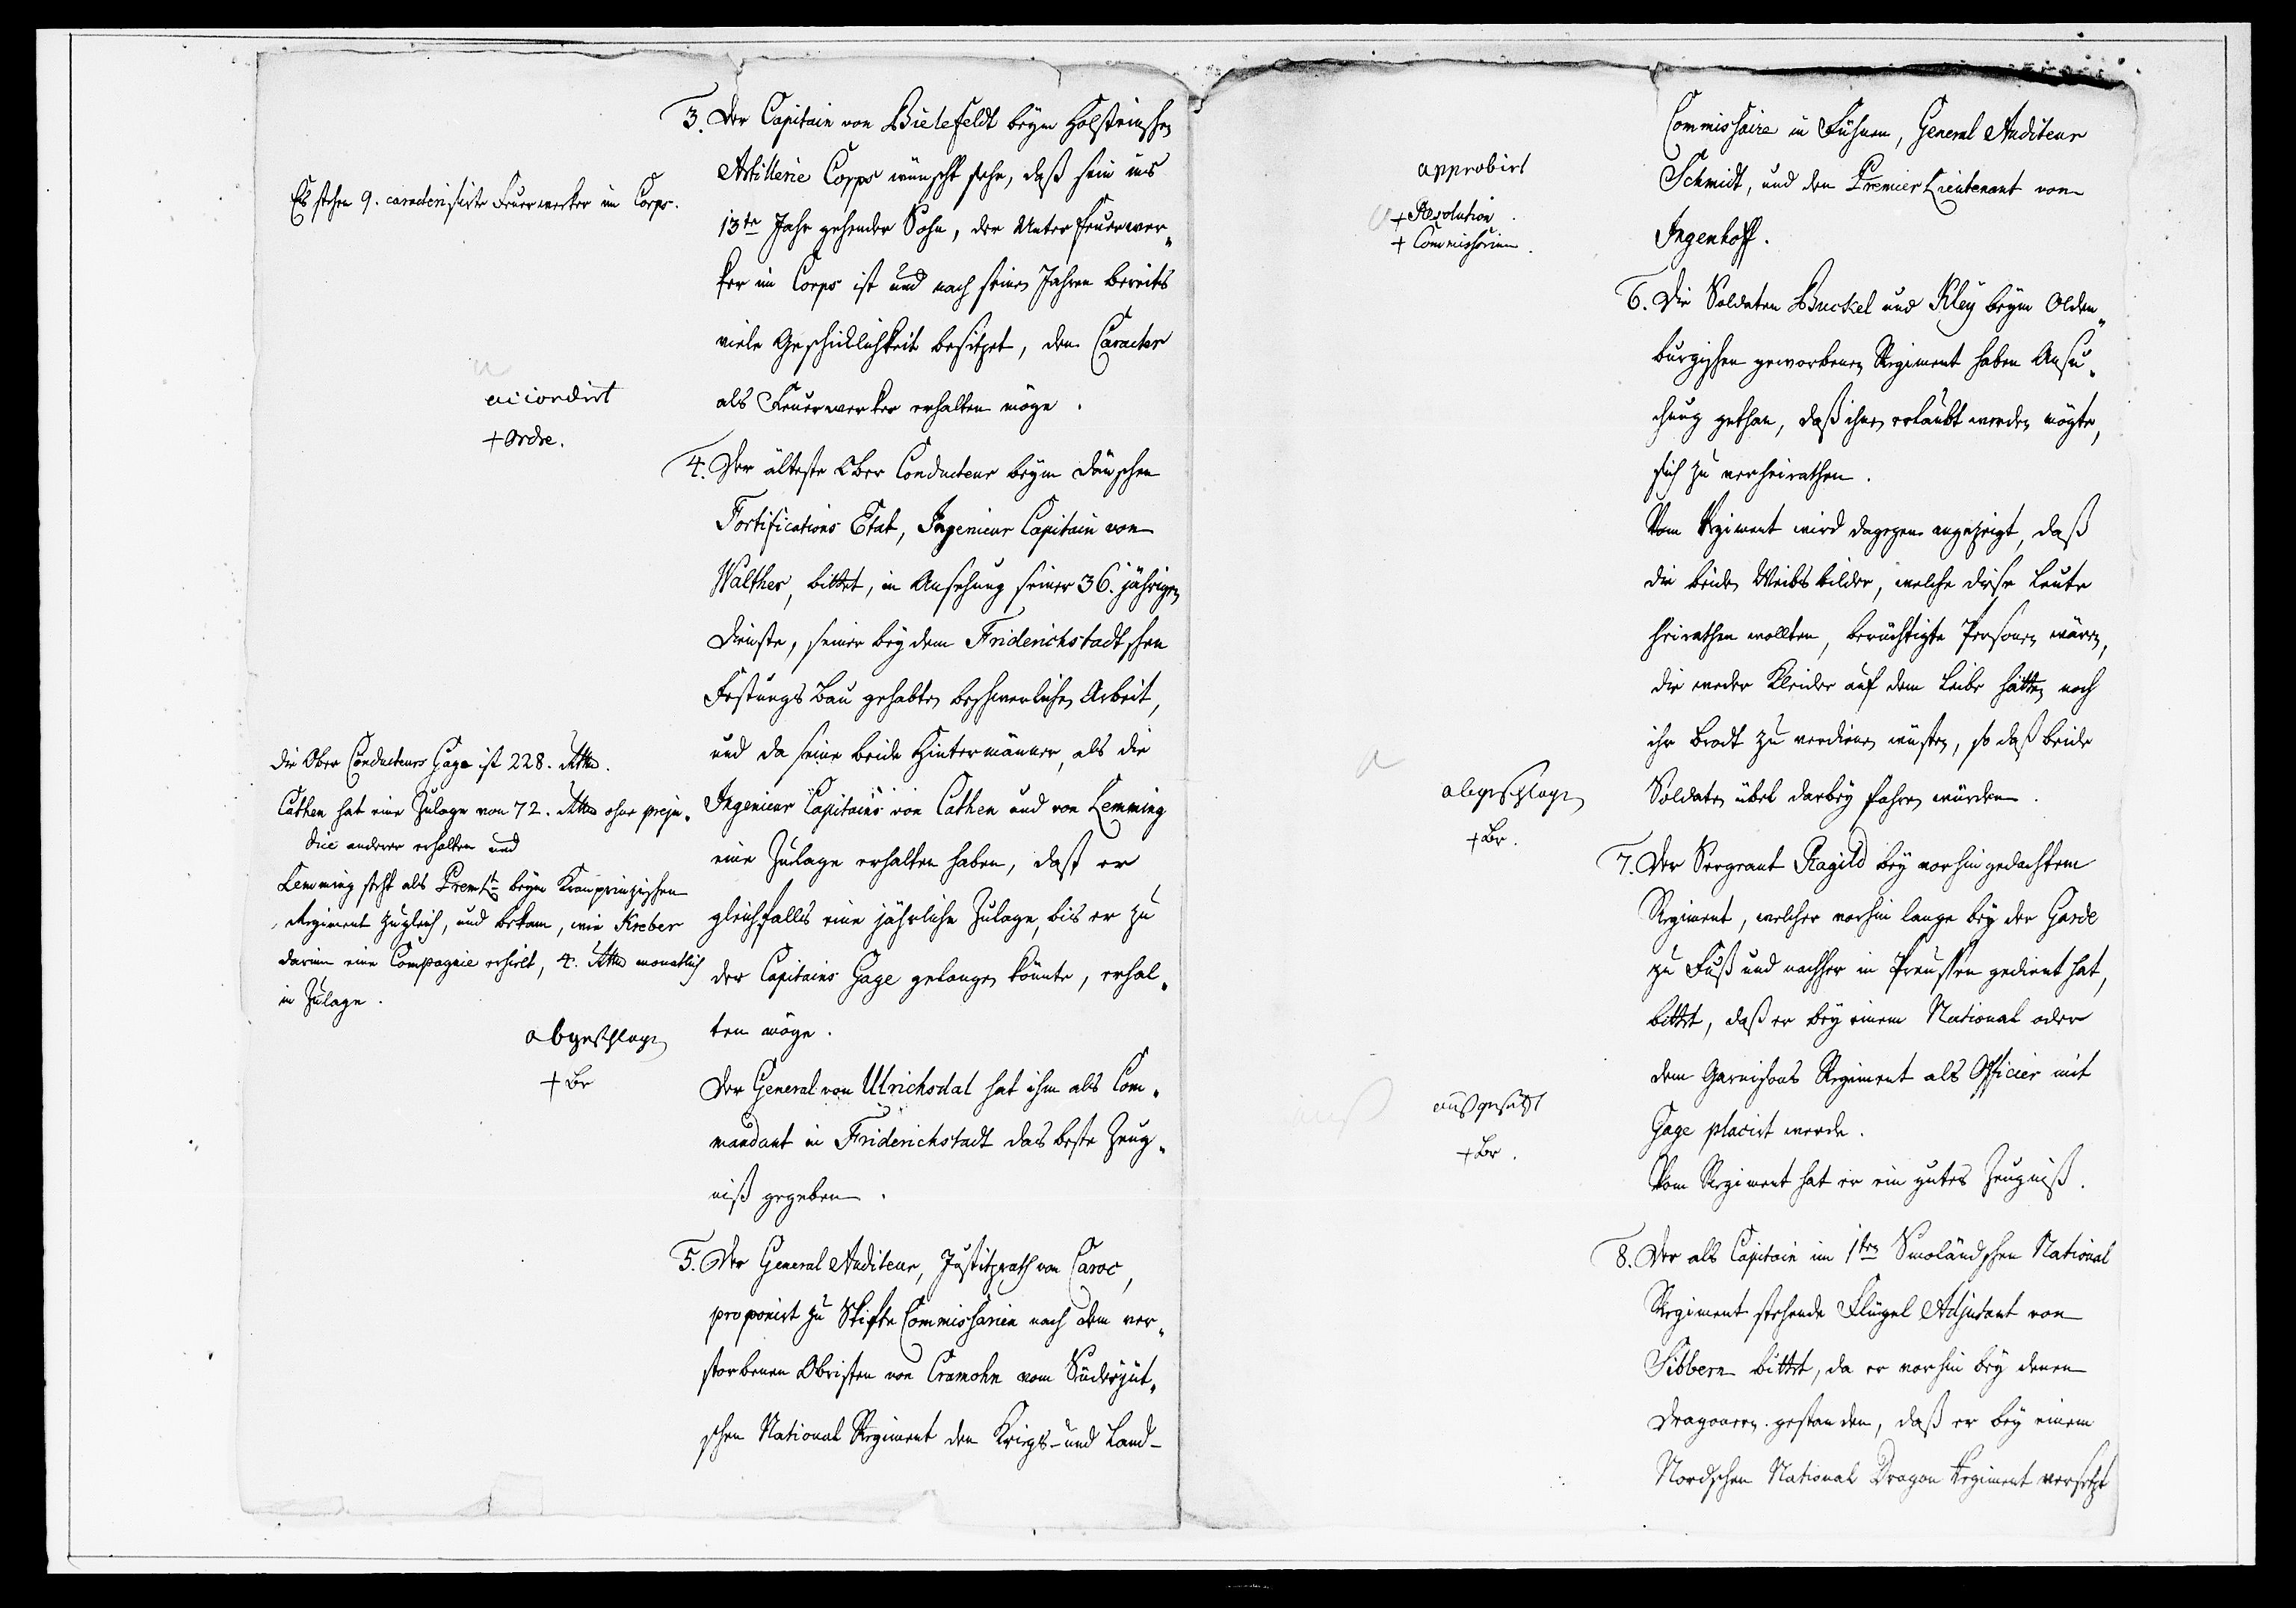 3. Der Capitain von Bielefeldt beym Holsteinschen
Artillerie Corps wünscht sehr, daß sein ins
13te Jahr gehender Sohn, der Unter Feuerwer„
ker im Corps ist und nach seinen Jahren bereits
viele Geschicklichkeit besitzet, den Caracter
als Feuerwerker erhalten möge.
Es stehen 9. caracterisirte Feuerwerker im Corps.
accordirt
+ Ordre.
4. Der älteste Ober Conducteur beym dänschen
Fortifications Etat, Ingenieur Capitain von
Walther, bittet, in Ansehung seiner 36. jährigen
Dienste, seiner bey dem Friderichstadtschen
Festungs Bau gehabten beschwerlichen Arbeit,
und da seine beide Hintermänner, als die
Ingenieur Capitains von Cathen und von Lemming
eine Zulage erhalten haben, daß er
gleichfalls eine jährliche Zulage, bis er zu
der Capitains Gage gelangen könnte, erhal„
ten möge.
Der General von Ulrichsdal hat ihm als Com„
mandant in Friderichstadt das beste Zeug„
niß gegeben.
die Ober Conducteurs Gage ist 228. Rthlr.
Cathen hat eine Zulage von 72. Rthlr ohne preju„
dice anderer erhalten und
Lemming steht als Prem Lt beym Kronprinzischen
Regiment zugleich, und bekam, wie Kreber
darinn eine Compagnie erhielt, 4. Rthlr monatlich
in Zulage.
abgeschlagen
+ Br
5. Der General Auditeur, Justitzrath von Caroc,
proponirt zu Stifts Commissarien nach dem ver„
storbenen Obristen von Cramohn vom Süderjüt„
schen National Regiment den Kriegs- und Land-
Commissaire in Fühnen, General Auditeur
Schmidt, und den Premier Lieutenant von
Ingenhoff.
approbirt
+ Resolution.
+ Commissorium.
6. Die Soldaten Buckel und Kley beym Olden„
burgischen geworbenen Regiment haben Ansu„
chung gethan, daß ihnen erlaubt werden mögte,
sich zu verheirathen.
Vom Regiment wird dagegen angezeigt, daß
die beiden Weibsbilder, welche diese Leute
heirathen wollten, berüchtigte Personen wären,
die weder Kleider auf dem Leibe hätten noch
ihr Brodt zu verdienen wüsten, so daß beide
Soldaten übel darbey fahren würden.
abgeschlagen
+ Br.
7. Der Sergeant Ragild bey vorhin gedachtem
Regiment, welcher vorhin lange bey der Garde
zu Fuß und nachher in Preussen gedient hat,
bittet, daß er bey einem National oder
dem Garnisons Regiment als Officier mit
Gage placirt werde.
Vom Regiment hat er ein gutes Zeugniß.
ausgesetzt
+ Br.
8. Der als Capitain im 1sten Smoländschen National
Regiment stehende Flügel Adjutant von
Sibbern bittet, da er vorhin bey denen
Dragonern gestanden, daß er bey einem
Nordschen National Dragon Regiment versetzt